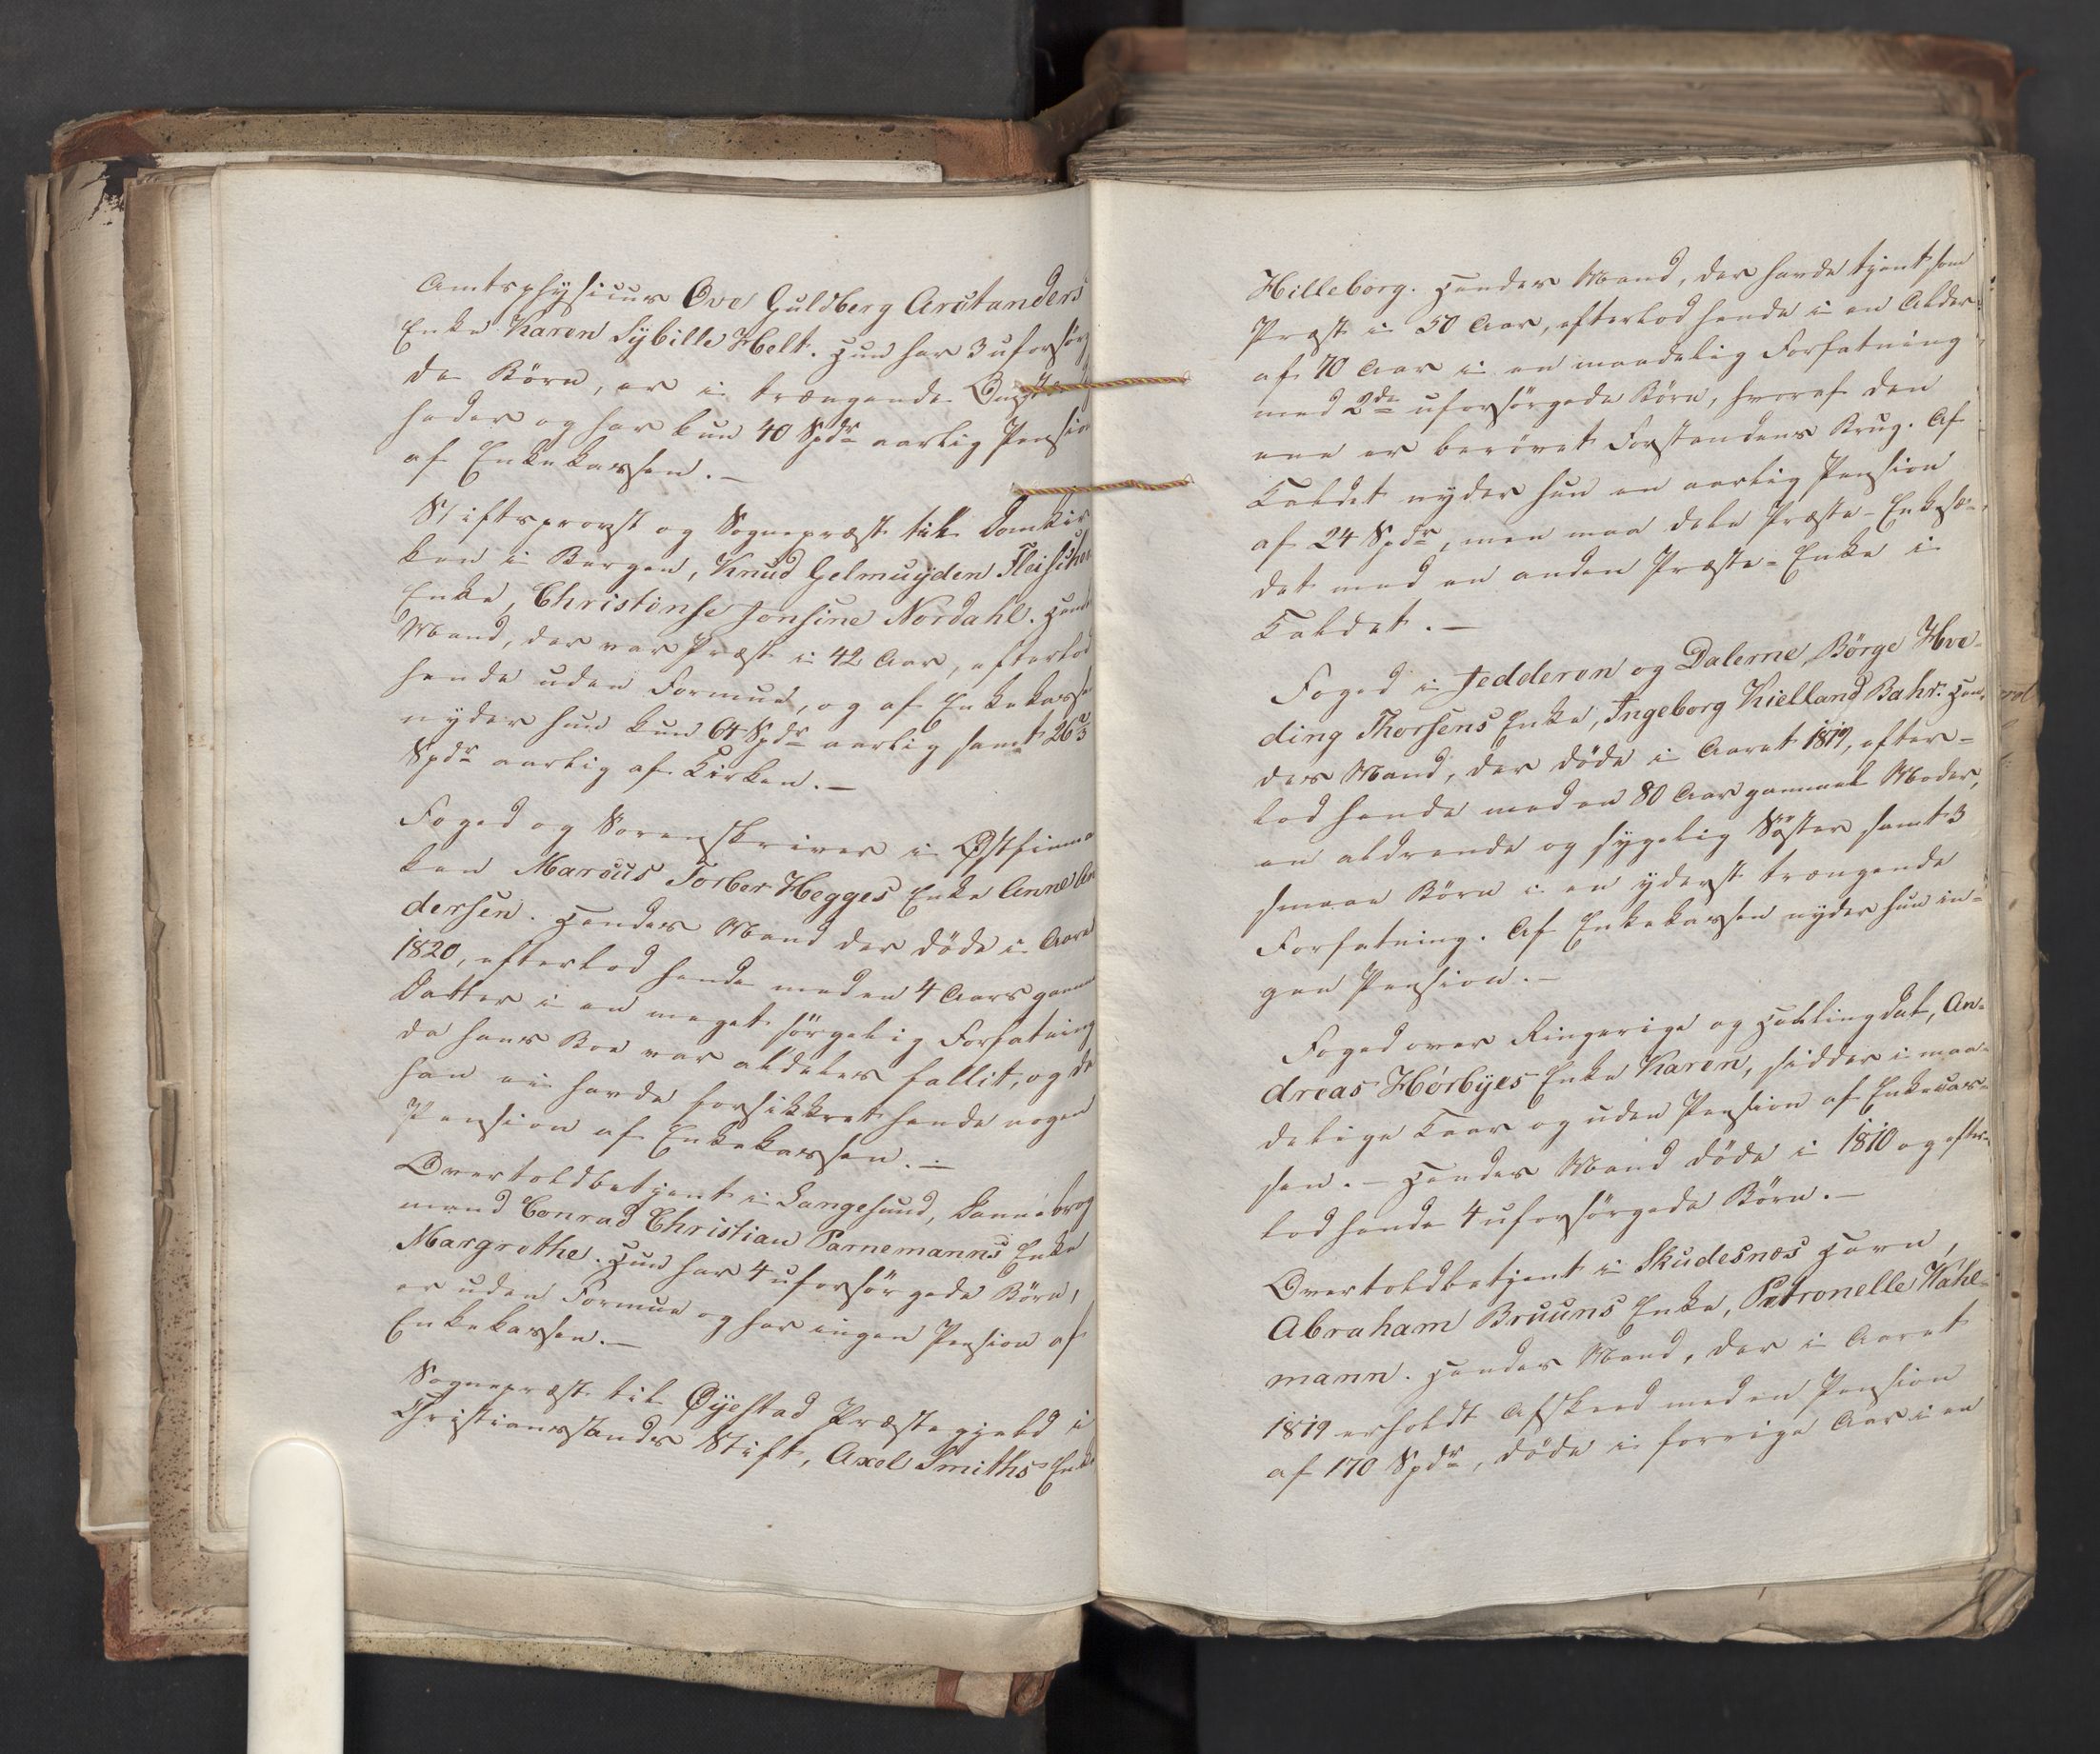 Amtsphysicus Ove Guldberg Arctanders
Enke Karen Sybille Helt. Hun har 3 uforsörg
de Börn, er i trængende Omstæn
heder og har kun 40 Spdr aarlig Pension
af Enkekassen.—
Stiftsprovst og Sognepræst til Domkir
ken i Bergen, Knud Gelmuyden Fleischer
Enke, Christinse Jonsine Nordahl. Hendes
Mand, der var Præst i 42 Aar, efterlod
hende uden Formue, og af Enkekassen
nyder hun kun 64 Spdr aarlig samt 26⅔
Spdr aarlig af Kirken.—
Foged og Sorenskriver i Østfinmar
ken Marcus Torber Hegges Enke Anne An
dersen. Hendes Mand der döde i Aaret
1820, efterlod hende med en 4 Aars gammel
Datter i en meget sörgelig Forfatning
da hans Boe var aldeles fallit, og da
han ei havde forsikkret hende nogen
Pension af Enkekassen.—
Overtoldbetjent i Langesund, Dannebrog
mand Conrad Christian Parnemanns Enke
Margrethe. Hun har 4 uforsörgede Börn,
er uden Formue og har ingen Pension af
Enkekassen.—
Sognepræst til Øyestad Præstegjeld i
Christianssands Stift, Axel Smiths Enke
Hilleborg. Hendes Mand, der havde tjent som
Præst i 50 Aar, efterlod hende i en Alder
af 70 Aar i en maadelig Forfatning
med 2de uforsörgede Börn, hvoraf den
ene er berövet Forstandens Brug. Af
Kaldet nyder hun en aarlig Pension
af 24 Spdr, men maa dele Præste-Enkesæ-
det med en anden Præste-Enke i
Kaldet.—
Foged i Jedderen og Dalerne, Börge Hve-
ding Thorsens Enke, Ingeborg Kielland Bahr. Hen-
des Mand, der döde i Aaret 1819, efter-
lod hende med en 80 Aar gammel Moder,
en aldrende og sygelig Söster samt 3
smaae Börn i en yderst trængende
Forfatning. Af Enkekassen nyder hun in-
gen Pension.—
Foged over Ringerige og Hallingdal, An-
dreas Hörbyes Enke Karen, sidder i maa-
delige Kaar og uden Pension af Enkecas-
sen.— Hendes Mand döde i 1810 og efter-
lod hende 4 uforsörgede Börn.—
Overtoldbetjent i Skudesnæs Havn,
Abraham Bruuns Enke, Petronelle Wahl-
mann. Hendes Mand, der i Aaret
1819 erholdt Afskeed med en Pension
af 170 Spdr, döde i forrige Aar i en